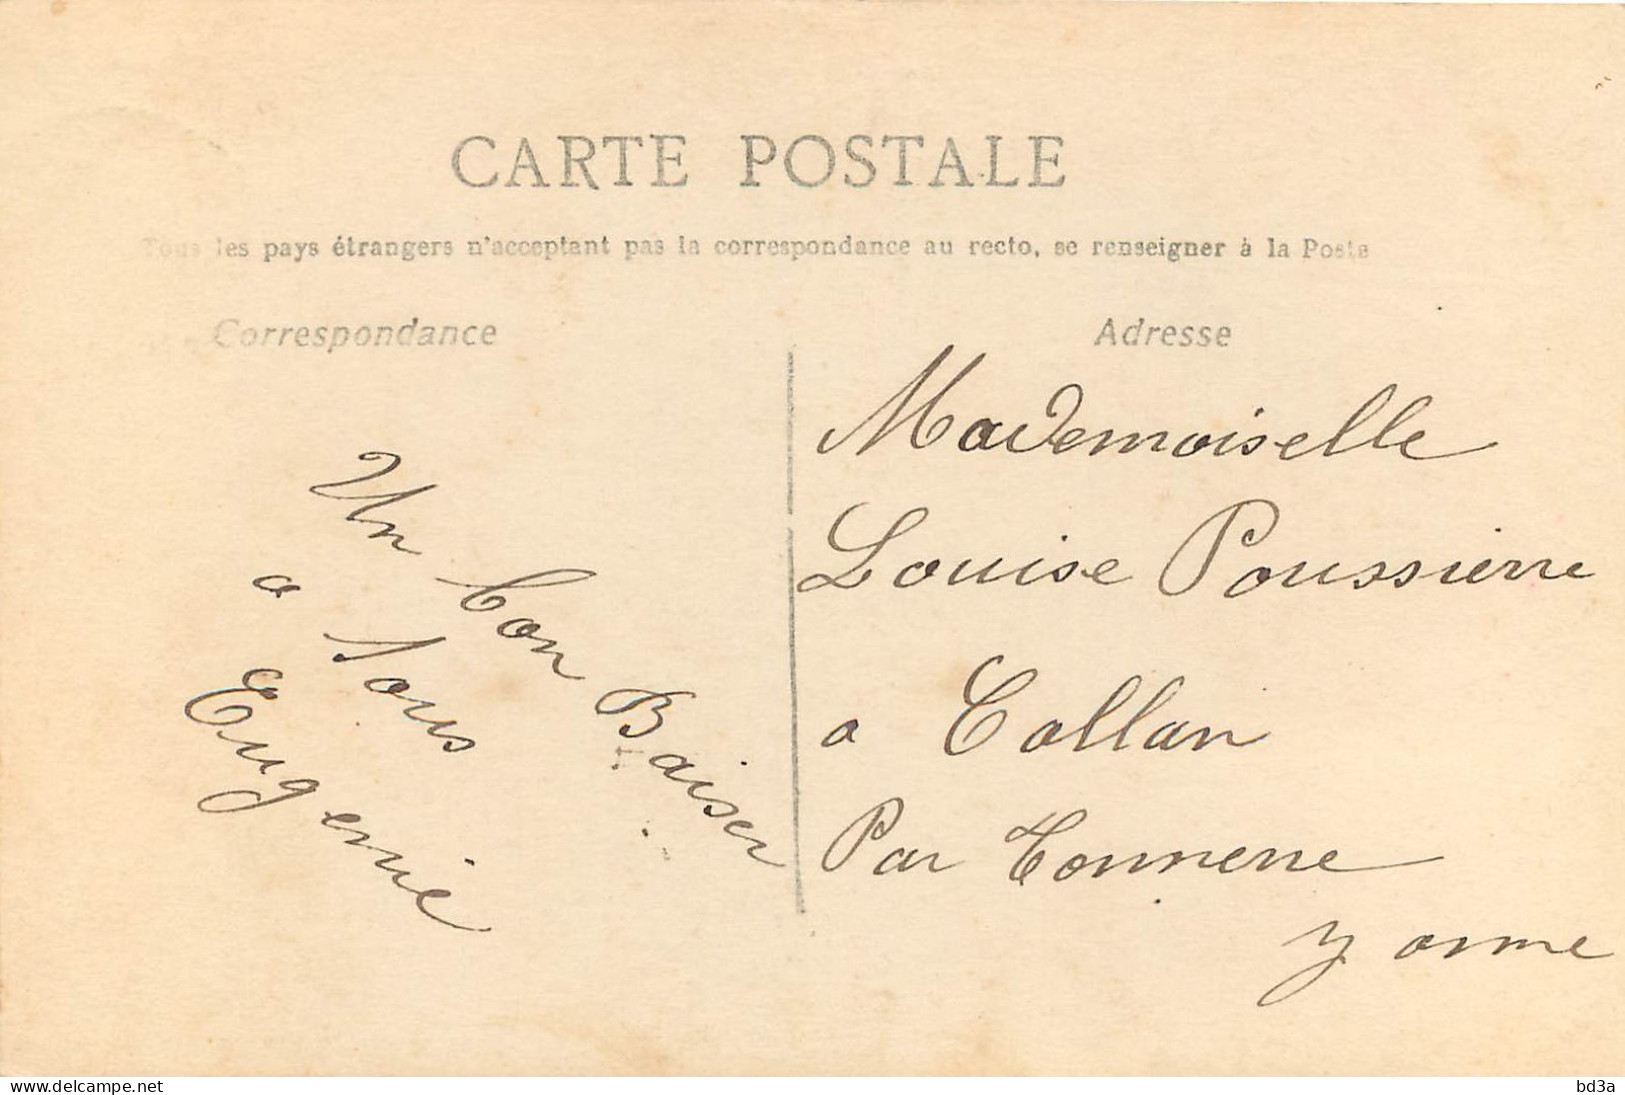 CARTE POSTALE
Tous les pays étrangers n'acceptant pas la correspondance au recto, se renseigner à la Poste
Correspondance
Un bon Baiser
a Tous
Eugenie
Adresse
Mademoiselle
Louise Poussierre
a Collan
Par Tonnerre
Yonne
www.delcampe.net
bd3a